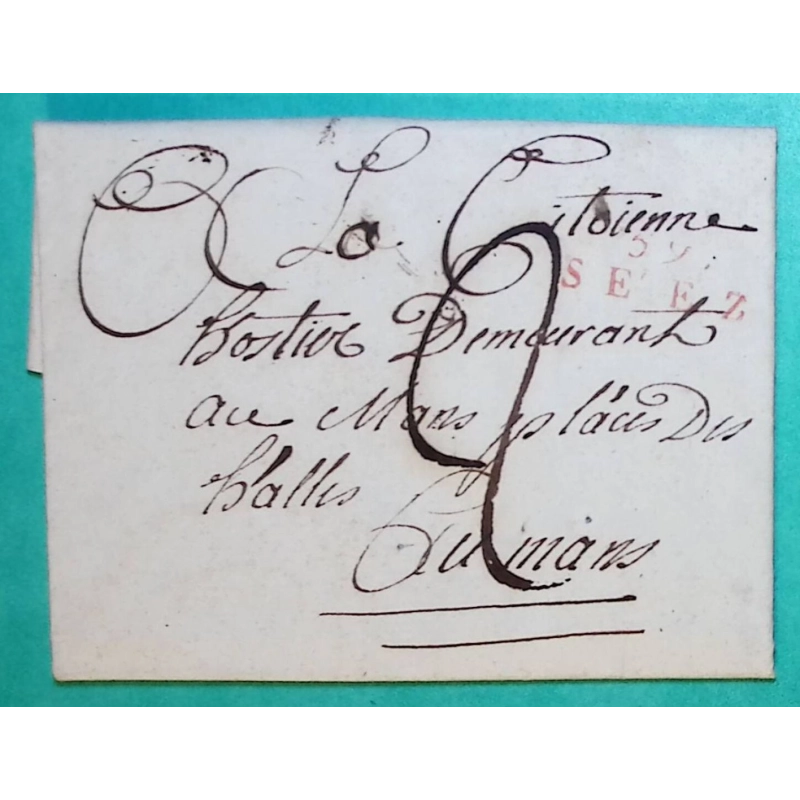 A La Citoienne
59
SEEZ
hostive Demeurant
au Mans place Des
halles
Au mans
9